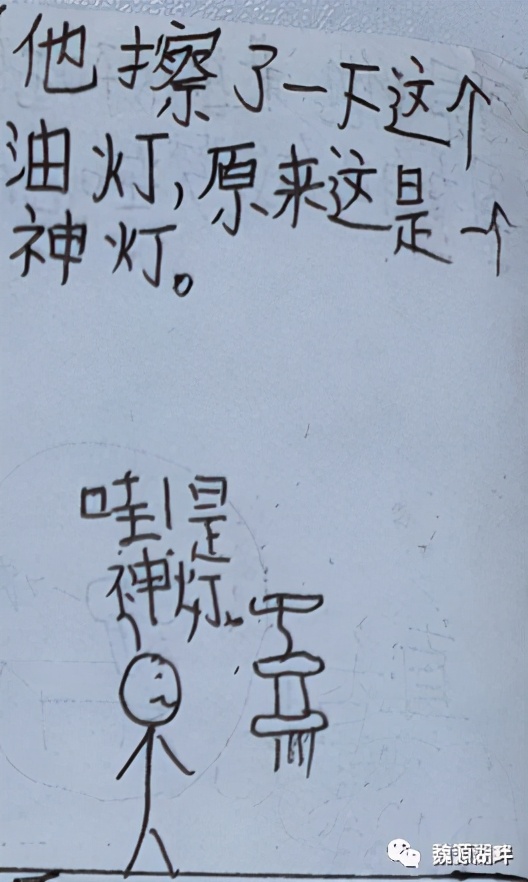 他擦了一下这个
油灯,原来这是一个
神灯。
哇!是
神灯。
魏源湖畔